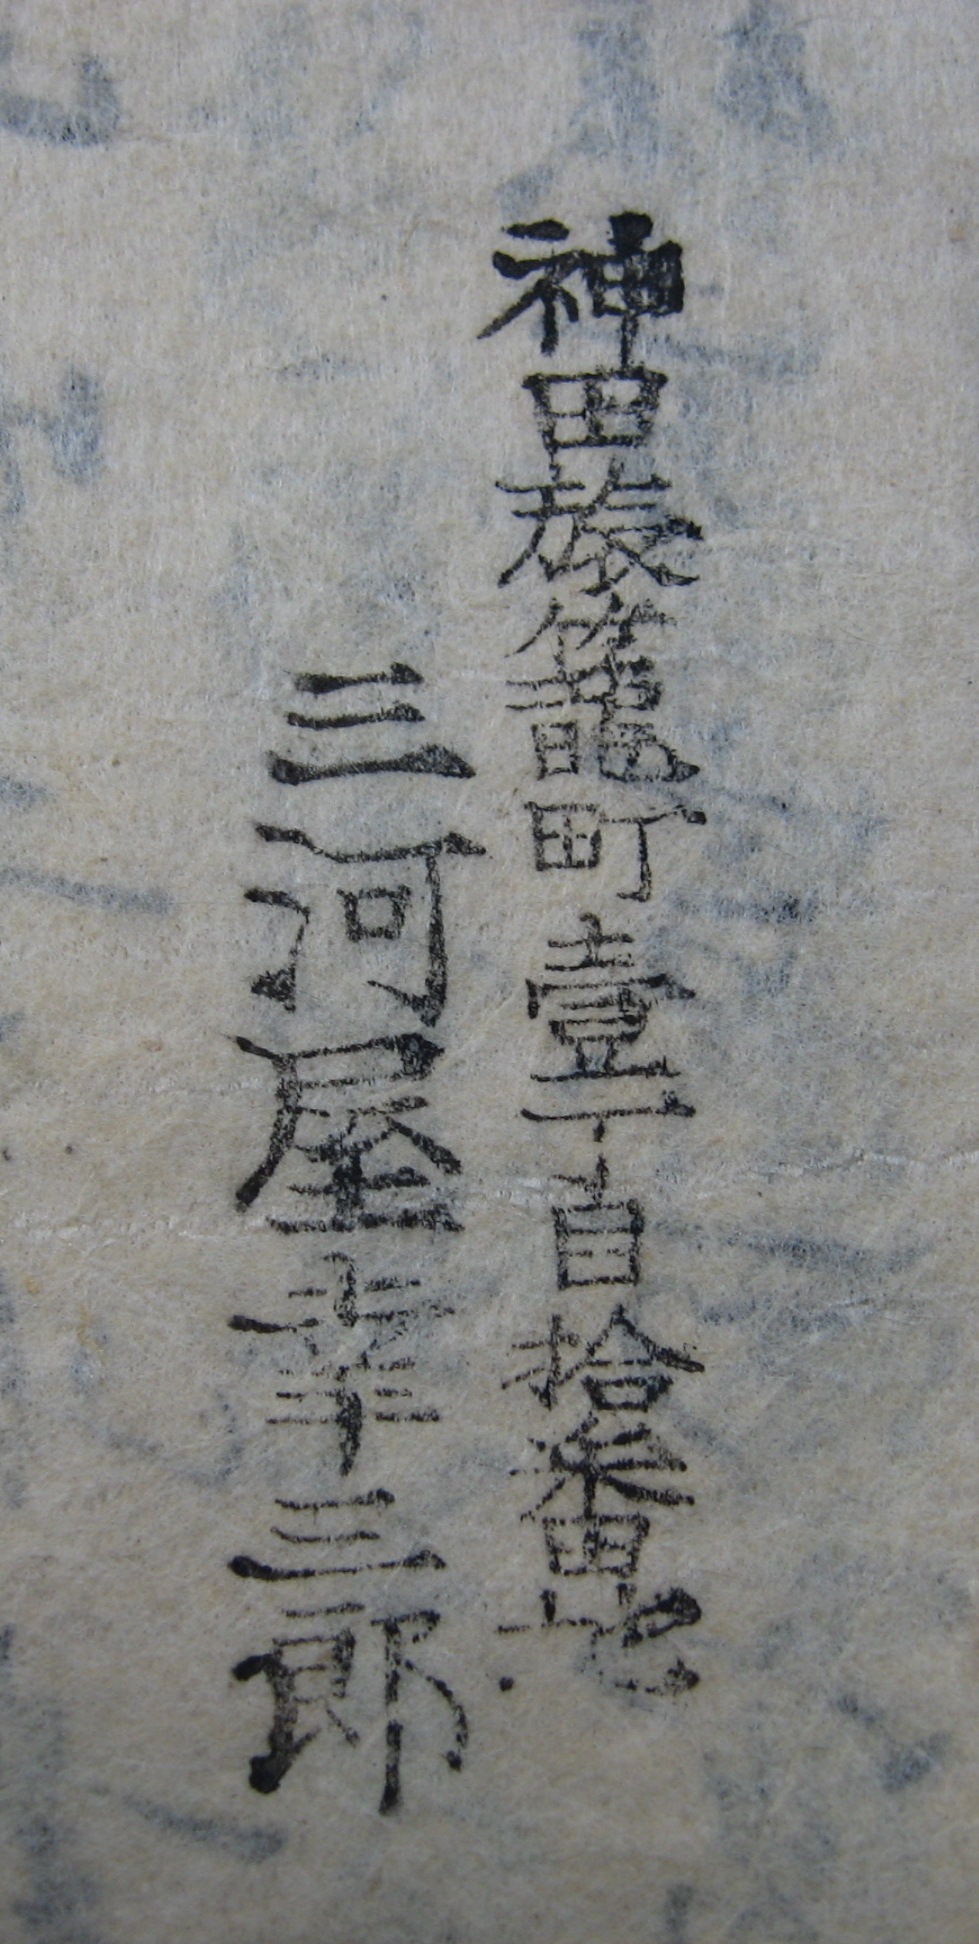 神田旅籠町壹丁目拾番地
三河屋幸三郎